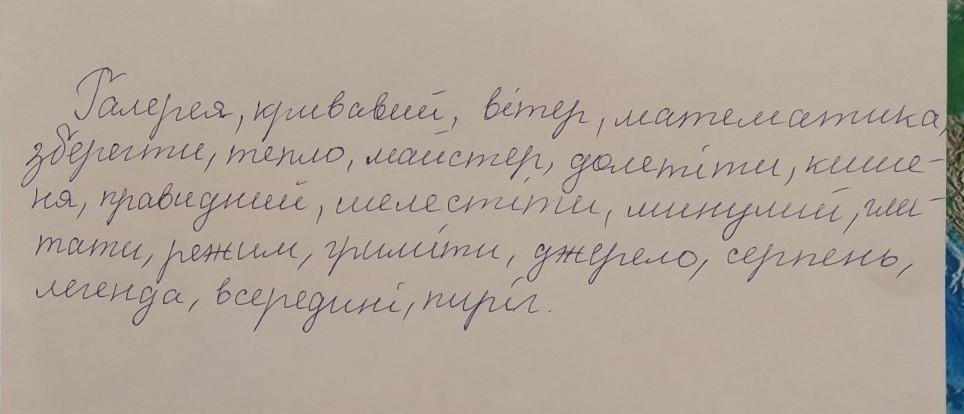 Галерея, кривавий, вітер, математика,
зберегти, тепло, майстер, долетіти, кише-
ня, правидний, шелестіти, минулий, гли-
тати, режим, гриміти, джерело, серпень,
легенда, всередині, пиріг.